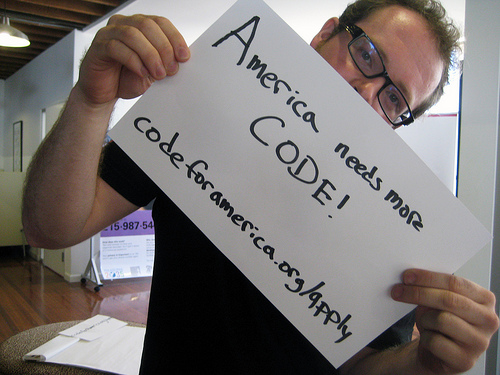 America needs more
CODE!
codeforamerica.org/apply
15-987-54